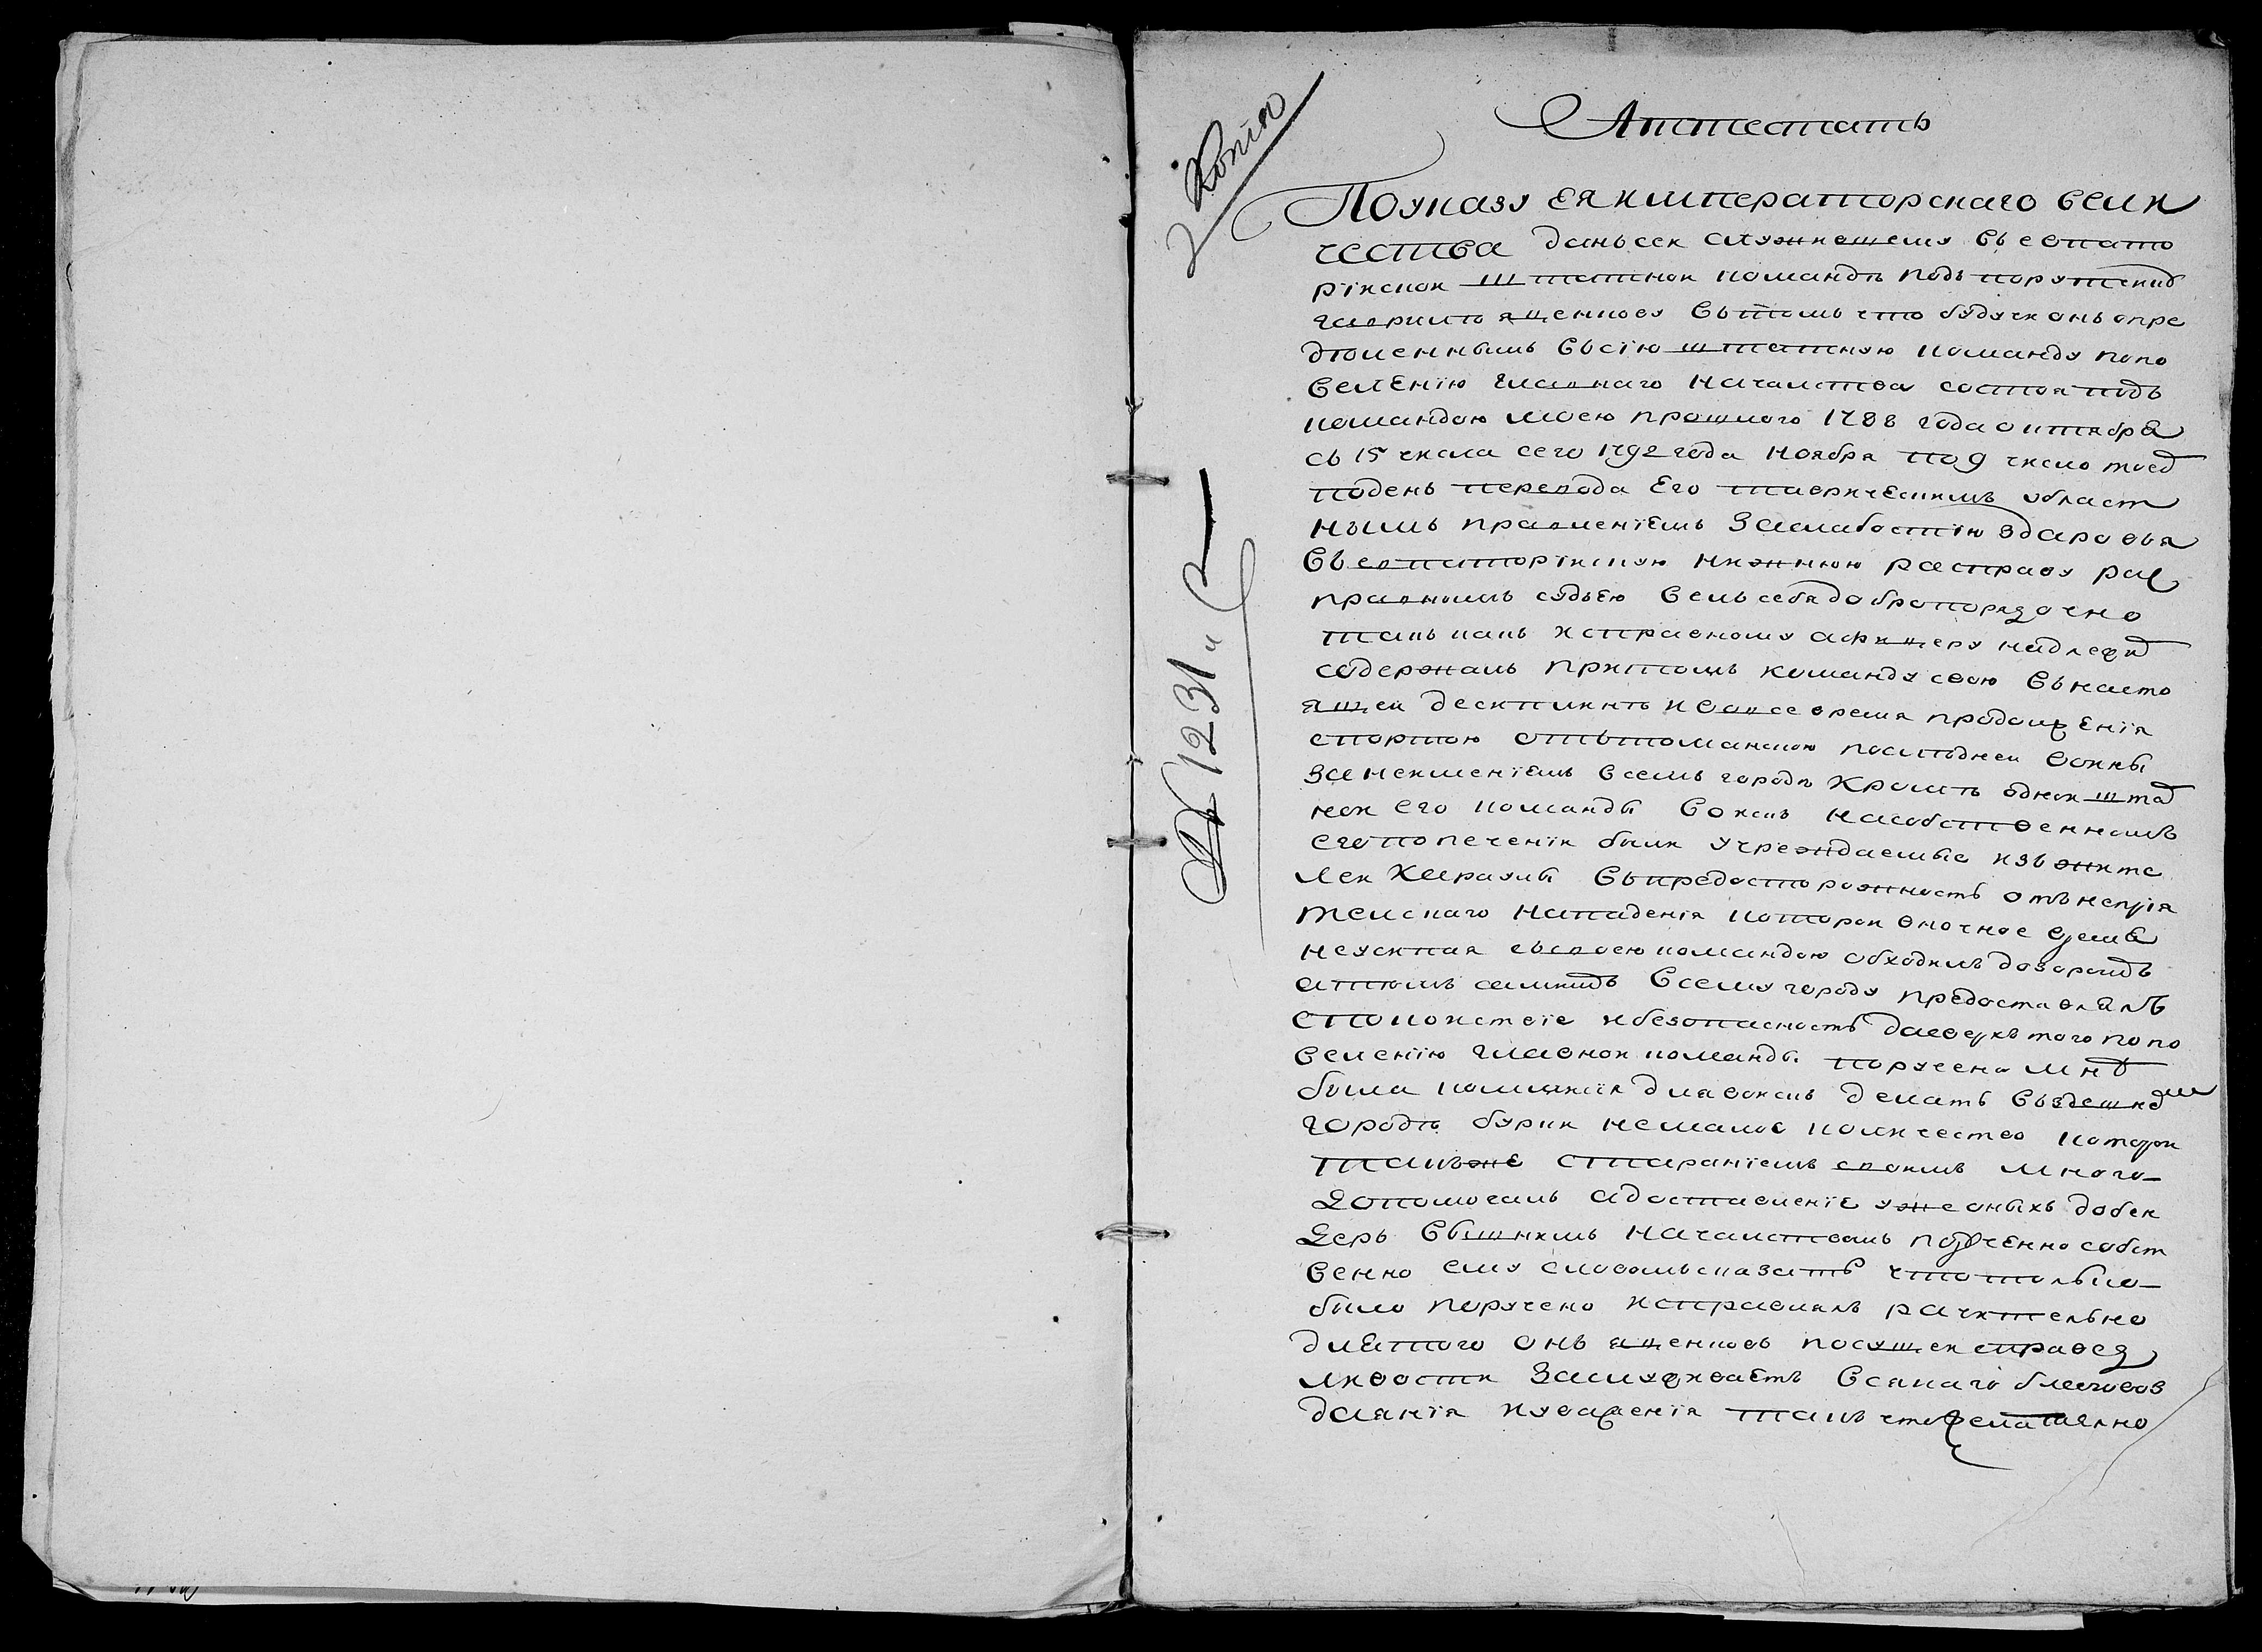 Копія
№ 1231 й
Аттестатъ
По указу ея императорскаго вели
чества данъ сей служившему въ евпато
рійской штатной командѣ подъ порутчику
гаврилѣ яценкову въ томъ что будучи онъ опре
дѣленнымъ въ сію штатную команду по по
веленію главнаго началства состоя подъ
командою моею прошлого 1788 года октября
съ 15 числа сего 1792 года ноября по 9 число
по день перевода его таврическимъ област
нымъ правленіемъ за слабостію здаровья
въ евпаторійскую нижнюю расправу рас
правнымъ судьею велъ себя добропорядочно
такъ какъ исправному афицеру надлежи
содержалъ притомъ команду свою въ насто
ящей десиплинѣ и во все время продолженія
с портою оттоманскою последней войны
за неименіемъ в семъ городѣ кромѣ одной штат
ной его команды войскъ на собственномъ
его попеченіи были учреждаемые изъ жите
лей караулы въ предосторожность отъ непрія
телскаго нападения которой в ночное время
не усипая съ своею командою обходилъ дозоромъ
а тѣмъ самимъ всему городу предоставлялъ
спокойствіе и безопасность да сверхъ того по по
веленію главной команды поручена мнѣ
была комисія для войскъ делать въ здешнемъ
городѣ бурки немалое количество которой
такъ же стараніемъ своимъ много
допомогалъ а доставленіе уже оныхъ до бен
деръ вышнимъ началствомъ порученно собст
венно ему словомъ сказать что только
было поручено исправлялъ рачительно
для того онъ яценковъ по сущей справед
ливости заслуживаетъ всякаго благовоз
даянія и уваженія такъ что желателно